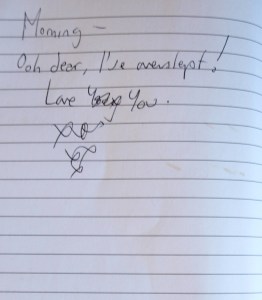 Morning –
Ooh dear, I've overslept!
Love You.
xo